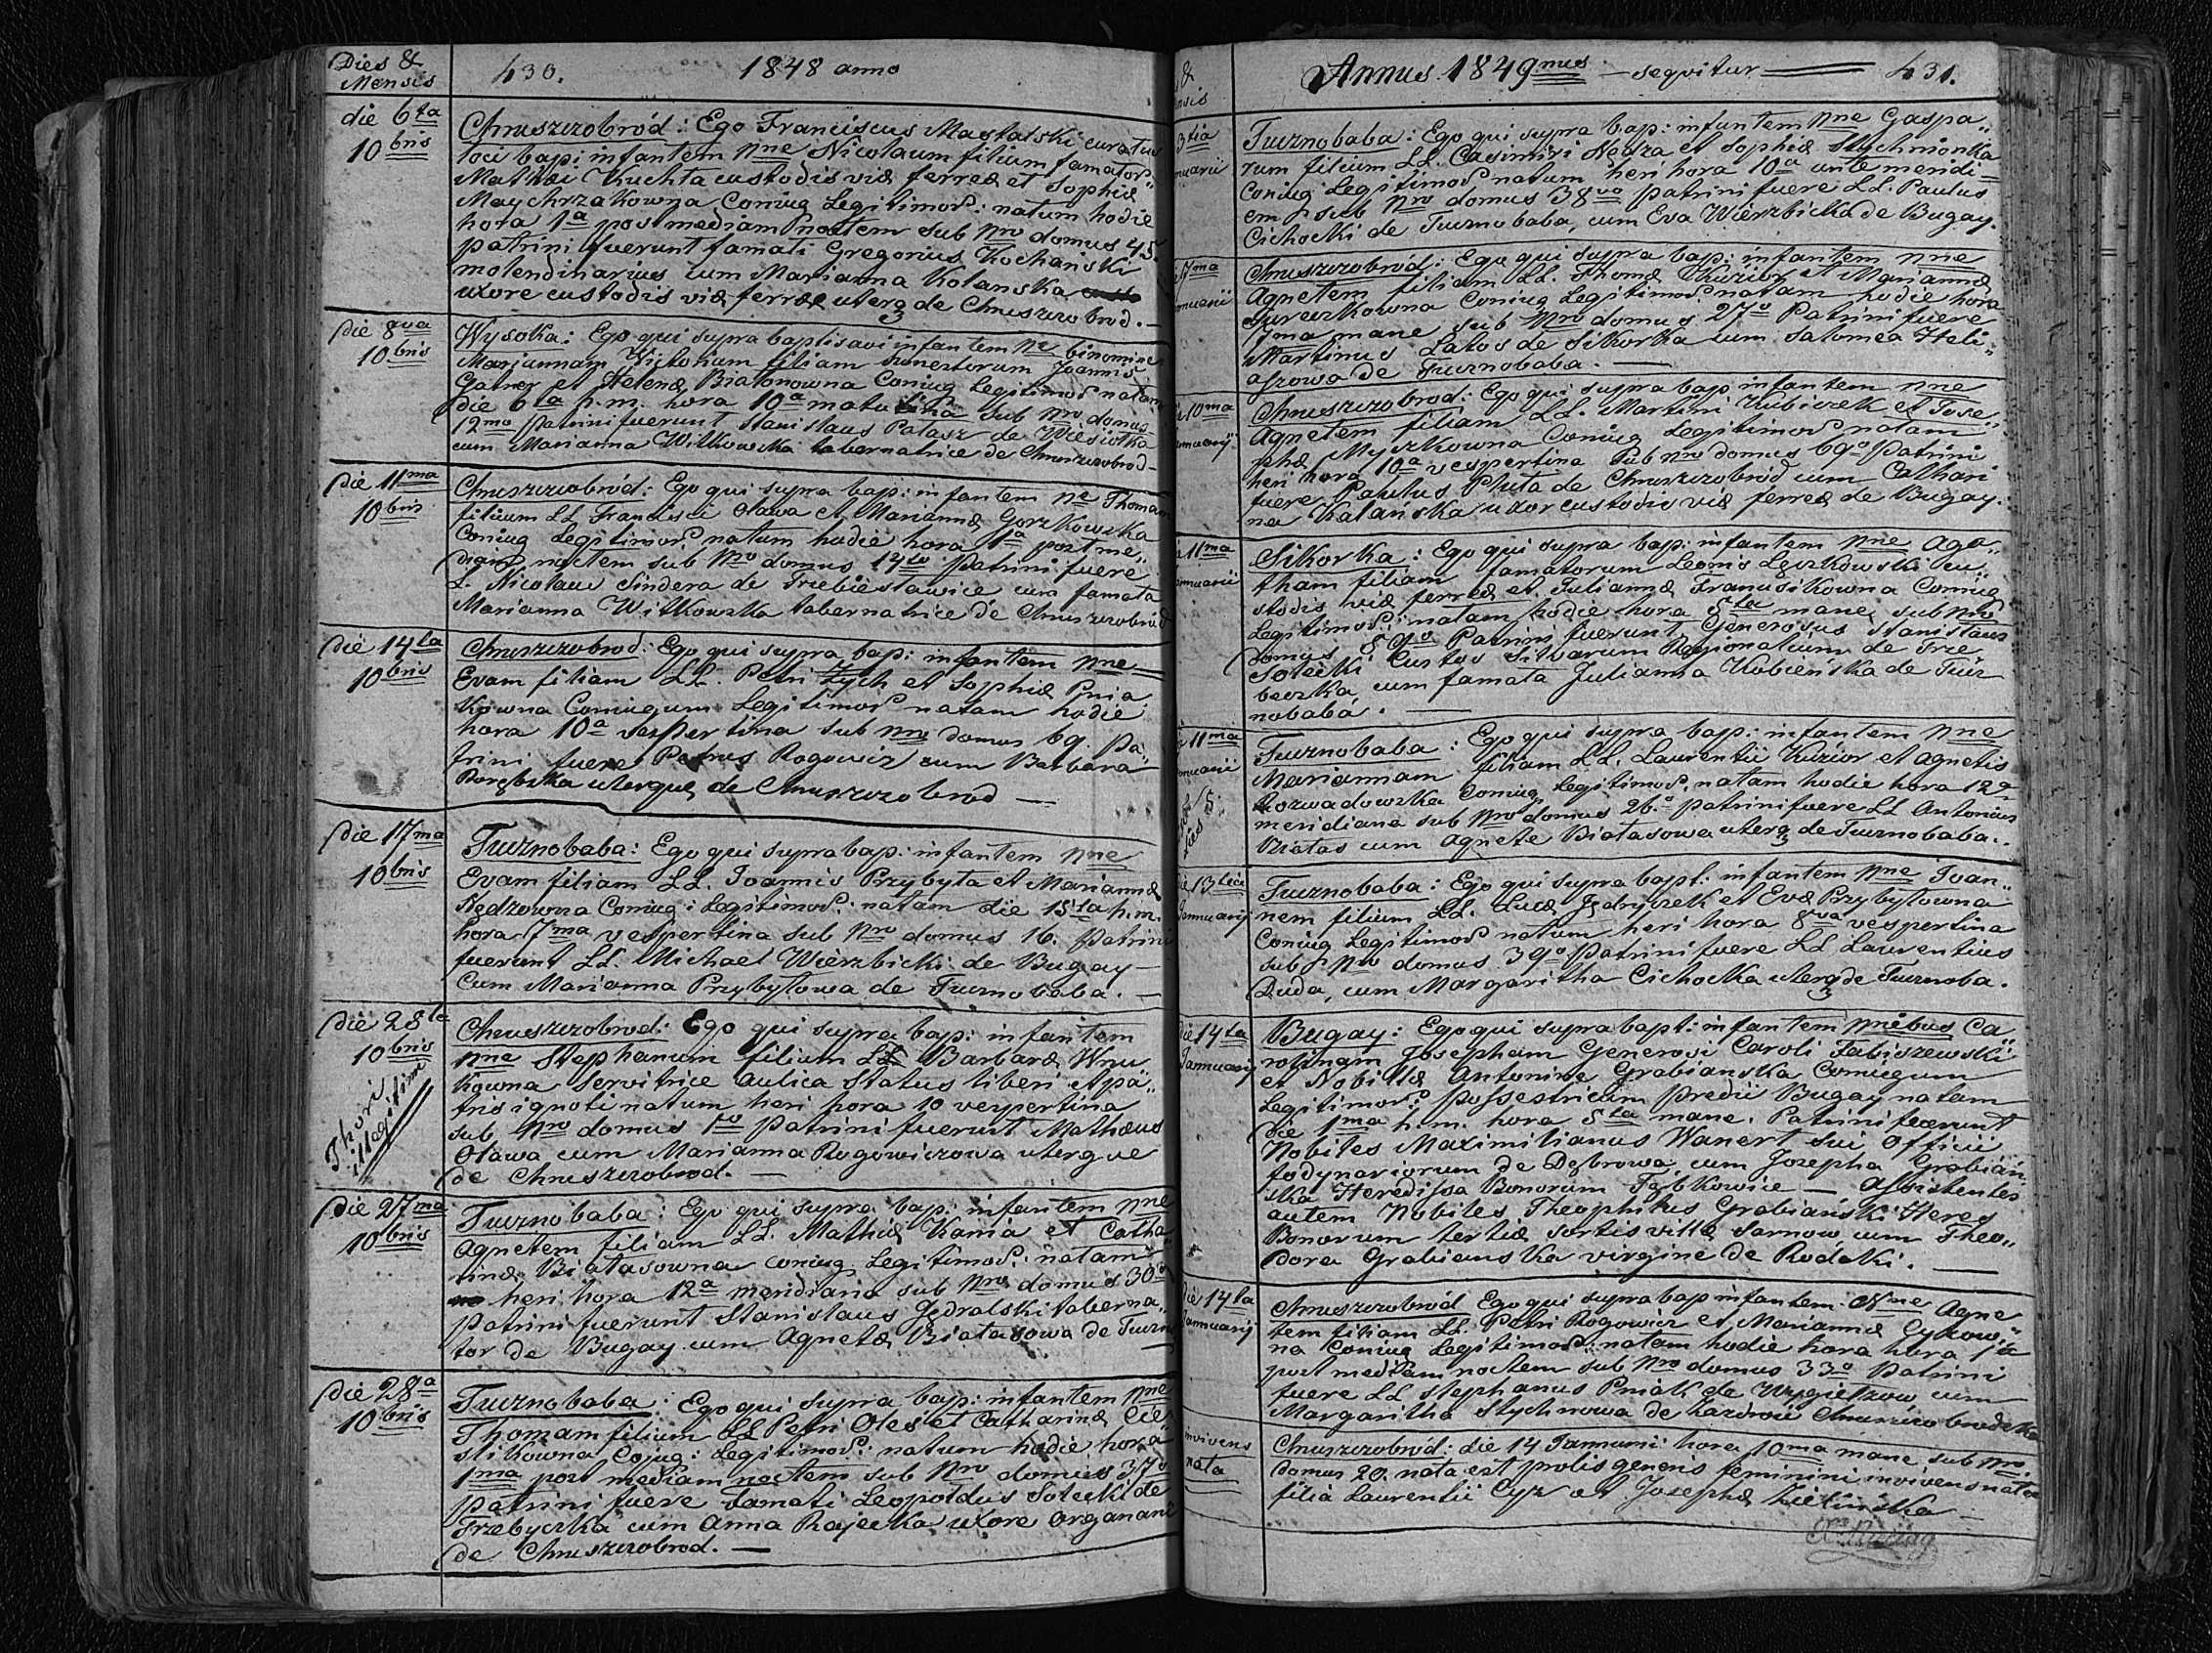 Dies &
Mensis
430. 1848 anno
die 6ta
10bris
Chruszczobród: Ego Franciscus Mastalski curatus
loci bap: infantem nne Nicolaum filium famator:
Mathæi Kuchta custodis viæ ferreæ et Sophiæ
Maychrzakowna Coniug Legitimor: natum hodie
hora 1a post mediam noctem sub Nro domus 45.
patrini fuerunt famati Gregorius Kochański
molendinarius cum Marianna Kolanska
uxore custodis viæ ferræ uterq de Chruszczobrod. —
Die 8va
10bris
Wysoka: Ego qui supra baptisavi infantem ne binomine
Mariannam Victoriam filiam honestorum Joannis
Gatner et Helenæ Białonowna Coniug Legitimor natam
die 6ta h. m. hora 10a matutina sub Nro domus
12mo Patrini fuerunt Stanislaus Pałasz de Wiesiołka
cum Marianna Witkowska tabernatrice de Chruszczobrod —
Die 11ma
10bris
Chruszczobród: Ego qui supra bap: infantem ne Thomam
filium LL Francisci Oława et Mariannæ Gorzkowska
Coniug Legitimor: natum hodie hora 1a post me„
diam noctem sub Nro domus 14to Patrini fuere
L. Nicolaus Sindera de Trzebiesławice cum famata
Marianna Witkowska tabernatrice de Chruszczobród
Die 14ta
10bris
Chruszczobrod: Ego qui supra bap: infantem nne
Evam filiam LL. Petri Zych et Sophiæ Pnia„
kowna Coniugum Legitimor natam hodie
hora 10a vespertina sub Nro domus 69. Pa„
trini fuere Petrus Rogowicz cum Barbara
Porębska uterque de Chruszczobrod —
Die 17ma
10bris
Tucznobaba: Ego qui supra bap: infantem nne
Evam filiam LL. Joannis Przybyła et Mariannæ
Nędzowna Coniug: Legitimor: natam die 15ta h. m.
hora 7ma vespertina sub Nro domus 16. Patrini
fuerunt LL. Michael Wierzbicki de Bugay —
Cum Marianna Przybyłowa de Tucznobaba. —
Die 28ta
10bris
Thori
illegitimi
Chruszczobrod: Ego qui supra bap: infantem
nne Stephanum filium LL Barbaræ Wnu„
kowna Servitrice aulica Status liberi et pa„
tris ignoti natum heri hora 10 vespertina
sub Nro domus 1o Patrini fuerunt Mathæus
Oława cum Marianna Rogowiczowa uterque
de Chruszczobrod. —
Die 27ma
10bris
Tucznobaba: Ego qui supra bap: infantem nne
Agnetem filiam LL. Mathiæ Kania et Catha„
rinæ Białasowna coniug Legitimor: natam
heri hora 12a meridiana sub Nro domus 30o
Patrini fuerunt Stanislaus Jędralski taberna„
tor de Bugay cum Agnetæ Białasowa de Tuczno
Die 28a
10bris
Tucznobaba: Ego qui supra bap: infantem nne
Thomam filium LL Petri Oleś et Catharinæ Cie„
slikowna Cojug: Legitimor: natum hodie hora
1ma post mediam noctem sub Nro domus 37o
patrini fuere famati Leopoldus Solecki de
Trzebyczka cum Anna Rajecka uxore organarii
de Chruszczobrod. —
&
nsis
Annus 1849nus — sequitur — 431.
3tia
nuarii
Tucznobaba: Ego qui supra bap: infantem nne Gaspa„
rum filium LL. Casimiri Nędza et Sophiæ Stychnionka
Coniug Legitimor natum heri hora 10a ante meridi=
em sub Nro domus 38vo patrini fuere LL. Paulus
Cichocki de Tucznobaba, cum Eva Wierzbicka de Bugay.
7ma
nuarii
Chruszczobród: Ego qui supra bap: infantem nne
Agnetem filiam LL. Thomæ Kuzior et Mariannæ
Jureczkowna Coniug Legitimor natam hodie hora
7ma mane sub Nro domus 27o Patrini fuere
Martinus Latos de Sikorka cum Salomea Heli„
aszowa de Tucznobaba. —
10ma
nuarij
Chruszczobrod: Ego qui supra bap infantem nne
Agnetem filiam LL. Martini Kubiczek et Jose„
phæ Myszkowna Coniug Legitimor natam
heri hora 10a vespertina Sub Nro domus 69o Patrini
fuere Paulus Pluta de Chruszczobród cum Cathari
na Kalańska uxor custodis viæ ferreæ de Bugay.
11ma
anuarii
Sikorka: Ego qui supra bap: infantem nne Aga„
tham filiam famatorum Leonis Lęczkowski cu„
stodis viæ ferreæ et Juliannæ Franusikowna Coniug
Legitimor: natam hodie hora 5ta mane sub Nro
domus 89o Patrini fuerunt Generosus Stanislaus
Solecki Custos Silvarum Regionalium de Trze
beczka, cum famata Julianna Kobieńska de Tucz
nobaba. —
11ma
anuarii
Tucznobaba: Ego qui supra bap: infantem nne
Mariannam filiam LL. Laurentii Kuzior et Agnetis
Rozwadowska Coniug Legitimor: natam hodie hora 12a
meridiana sub Nro domus 26o Patrini fuere LL Antonius
Białas cum Agnete Białasowa uterq de Tucznobaba.
die 13tia
Januarij
Tucznobaba: Ego qui supra bapt: infantem nne Joan„
nem filium LL. Lucæ Jędryszek et Evæ Przybyłowna
Coniug Legitimor natum heri hora 8va vespertina
sub Nro domus 39o Patrini fuere LL Laurentius
Duda, cum Margaritha Cichocka uterq de Tucznoba.
die 14ta
Januarij
Bugay: Ego qui supra bapt: infantem nnibus Ca„
rolinam Josepham Generosi Caroli Fabiszewski
et Nobilæ Antoninæ Grabianska Coniugum
Legitimor: possestricum Prædii Bugay natam
die 1ma h. m. hora 5ta mane. Patrini fuerunt
Nobiles Maximilianus Wanert sui Officii
fodynariorum de Dębrowa, cum Josepha Grabian„
ska Heredissa Bonorum Ząbkowice — Assistentes
autem Nobiles Theophilus Grabiański Heres
Bonorum tertiæ sortis villæ Sarnow cum Theo„
dora Grabianska virgine de Rodaki. —
die 14ta
Januarij
Chruszczobród Ego qui supra bap infantem Nne Agne„
tem filiam LL. Petri Rogowicz et Mariannæ Cykow„
na Coniug Legitimor: natam hodie hora hora 1a
post mediam noctem sub Nro domus 33o Patrini
fuere LL Stephanus Pniak de Wygiełzow cum
Margaritha Stychnowa de Zazdrość Chruszczobrodzka
invivens
nata
Chruszczobród: die 14 Januarii hora 10ma mane sub Nro.
domus 20. nata est prolis generis feminini invivens nata
filia Laurentii Cyz et Josephæ Zielińska —